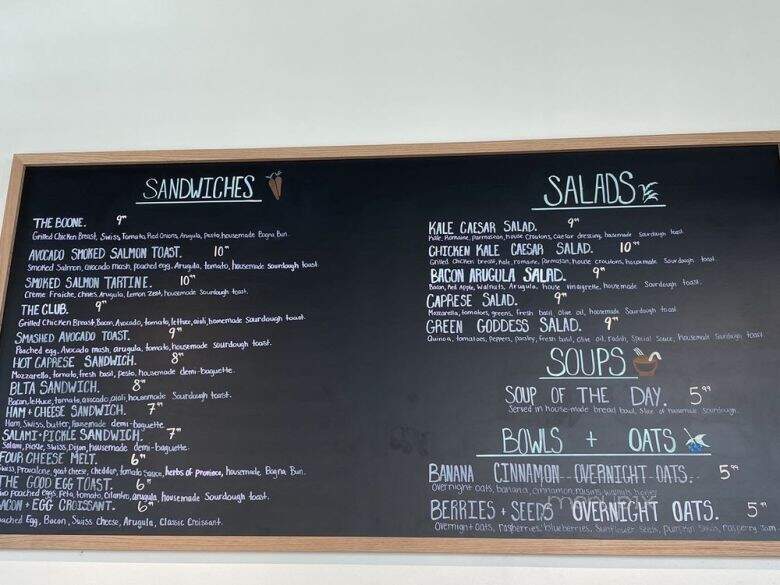 SANDWICHES
THE BOONE. 9
Grilled Chicken Breast, Swiss, Tomato, Red Onions, Arugula, pesto, housemade Bagna Bun.
AVOCADO SMOKED SALMON TOAST. 10
Smoked Salmon, avocado mash, poached egg, Arugula, tomato, housemade sourdough toast.
SMOKED SALMON TARTINE. 10
Crème Fraiche, Chives, Arugula, Lemon Zest, housemade Sourdough toast.
THE CLUB. 9
Grilled Chicken Breast, Bacon, Avocado, tomato, lettuce, aioli, homemade Sourdough toast.
SMASHED AVOCADO TOAST. 9
Poached egg, Avocado mash, arugula, tomato, housemade sourdough toast.
HOT CAPRESE SANDWICH. 8
Mozzarella, tomato, fresh basil, pesto, housemade demi-baguette.
BLTA SANDWICH. 8
Bacon, lettuce, tomato, avocado, aioli, housemade Sourdough toast.
HAM + CHEESE SANDWICH. 7
Ham, Swiss, butter, housemade demi-baguette
SALAMI + PICKLE SANDWICH. 7
Salami, pickle, Swiss, Dijon, housemade demi-baguette.
FOUR CHEESE MELT. 6
Swiss, Provalone, goat cheese, cheddar, tomato sauce, herbs of province, housemade Bagna Bun.
THE GOOD EGG TOAST. 6
poached eggs, Feta, tomato, Cilantro, arugula, housemade Sourdough toast.
ACON + EGG CROISSANT. 6
oached Egg, Bacon, Swiss Cheese, Arugula, Classic Croissant.
SALADS
KALE CAESAR SALAD. 9
Kale, Romaine, parmesan, house Croutons, Caesar dressing, housemade Sourdough toast
CHICKEN KALE CAESAR SALAD. 10
Grilled Chicken breast, Kale, romaine, Parmesan, house croutons, housemade Sourdough toast.
BACON ARUGULA SALAD. 9
Bacon, Red Apple, Walnuts, Arugula, house vinaigrette, housemade Sourdough toast.
CAPRESE SALAD. 9
Mozzarella, tomatoes, greens, fresh basil, Olive oil, housemade Sourdough toast
GREEN GODDESS SALAD. 9
Quinoa, tomatoes, Peppers, parsley, fresh basil, Olive oil, radish, Special Sauce, housemade Sourdough toast
SOUPS
SOUP OF THE DAY. 5⁹⁹
Served in house-made bread bowl, Slice of housemade Sourdough.
BOWLS + OATS
BANANA CINNAMON OVERNIGHT OATS. 5⁹⁹
Overnight oats, banana, cinnamon, raisins, walnuts, honey
BERRIES + SEEDS OVERNIGHT OATS. 5
Overnight Oats, raspberries, blueberries, Sunflower Seeds, pumpkin Seeds, raspberry Jam
menupix